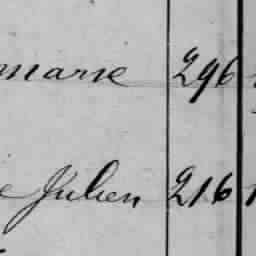 marie 296
e Julien 216